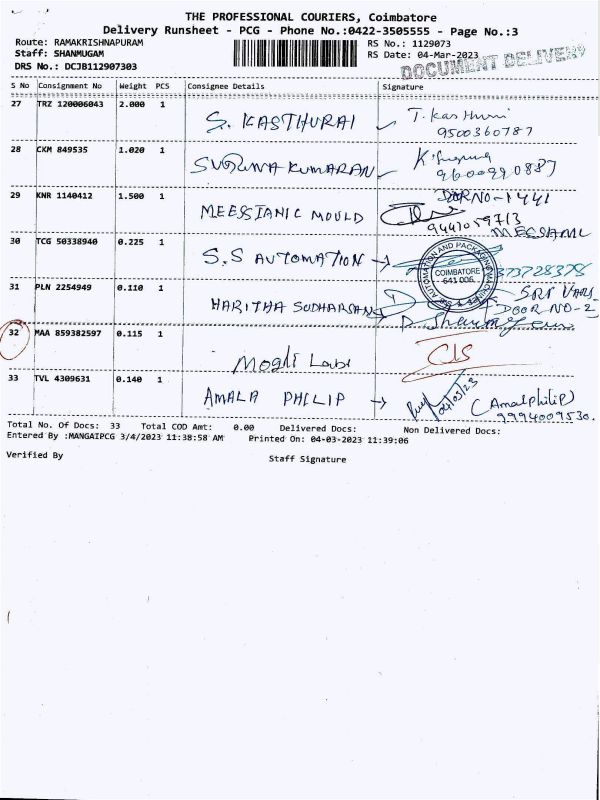 THE PROFESSIONAL COURIERS, Coimbatore
Delivery Runsheet - PCG - Phone No.:0422-3505555 - Page No.:3
Route: RAMAKRISHNAPURAM RS No.: 1129073
Staff: SHANMUGAM RS Date: 04-Mar-2023
DRS No.: DCJB112907303 DOCUMENT DELIVERY
S No Consignment No Weight PCS Consignee Details Signature
27 TRZ 120006043 2.000 1 S. KASTHURAI T. Kasthuri
9500360787
28 CKM 849535 1.020 1 SUGUNA KUMARAN
9600990887
29 KNR 1140412 1.500 1 MEESSIANIC MOULD DOOR NO-1441
9447059713
30 TCG 50338940 0.225 1 S.S AUTOMATION
AUTOMATION AND PACKAGING
COIMBATORE
641 006.
31 PLN 2254949 0.110 1 HARITHA SUDHARSAN SRI
DOOR NO-2
32 MAA 859382597 0.115 1 Labs CIS
33 TVL 4309631 0.140 1 AMALA PHILIP 04/03/23 (Amal Philip)
9994009530.
Total No. Of Docs: 33 Total COD Amt: 0.00 Delivered Docs: Non Delivered Docs:
Entered By :MANGAIPCG 3/4/2023 11:38:58 AM Printed On: 04-03-2023 11:39:06
Verified By Staff Signature